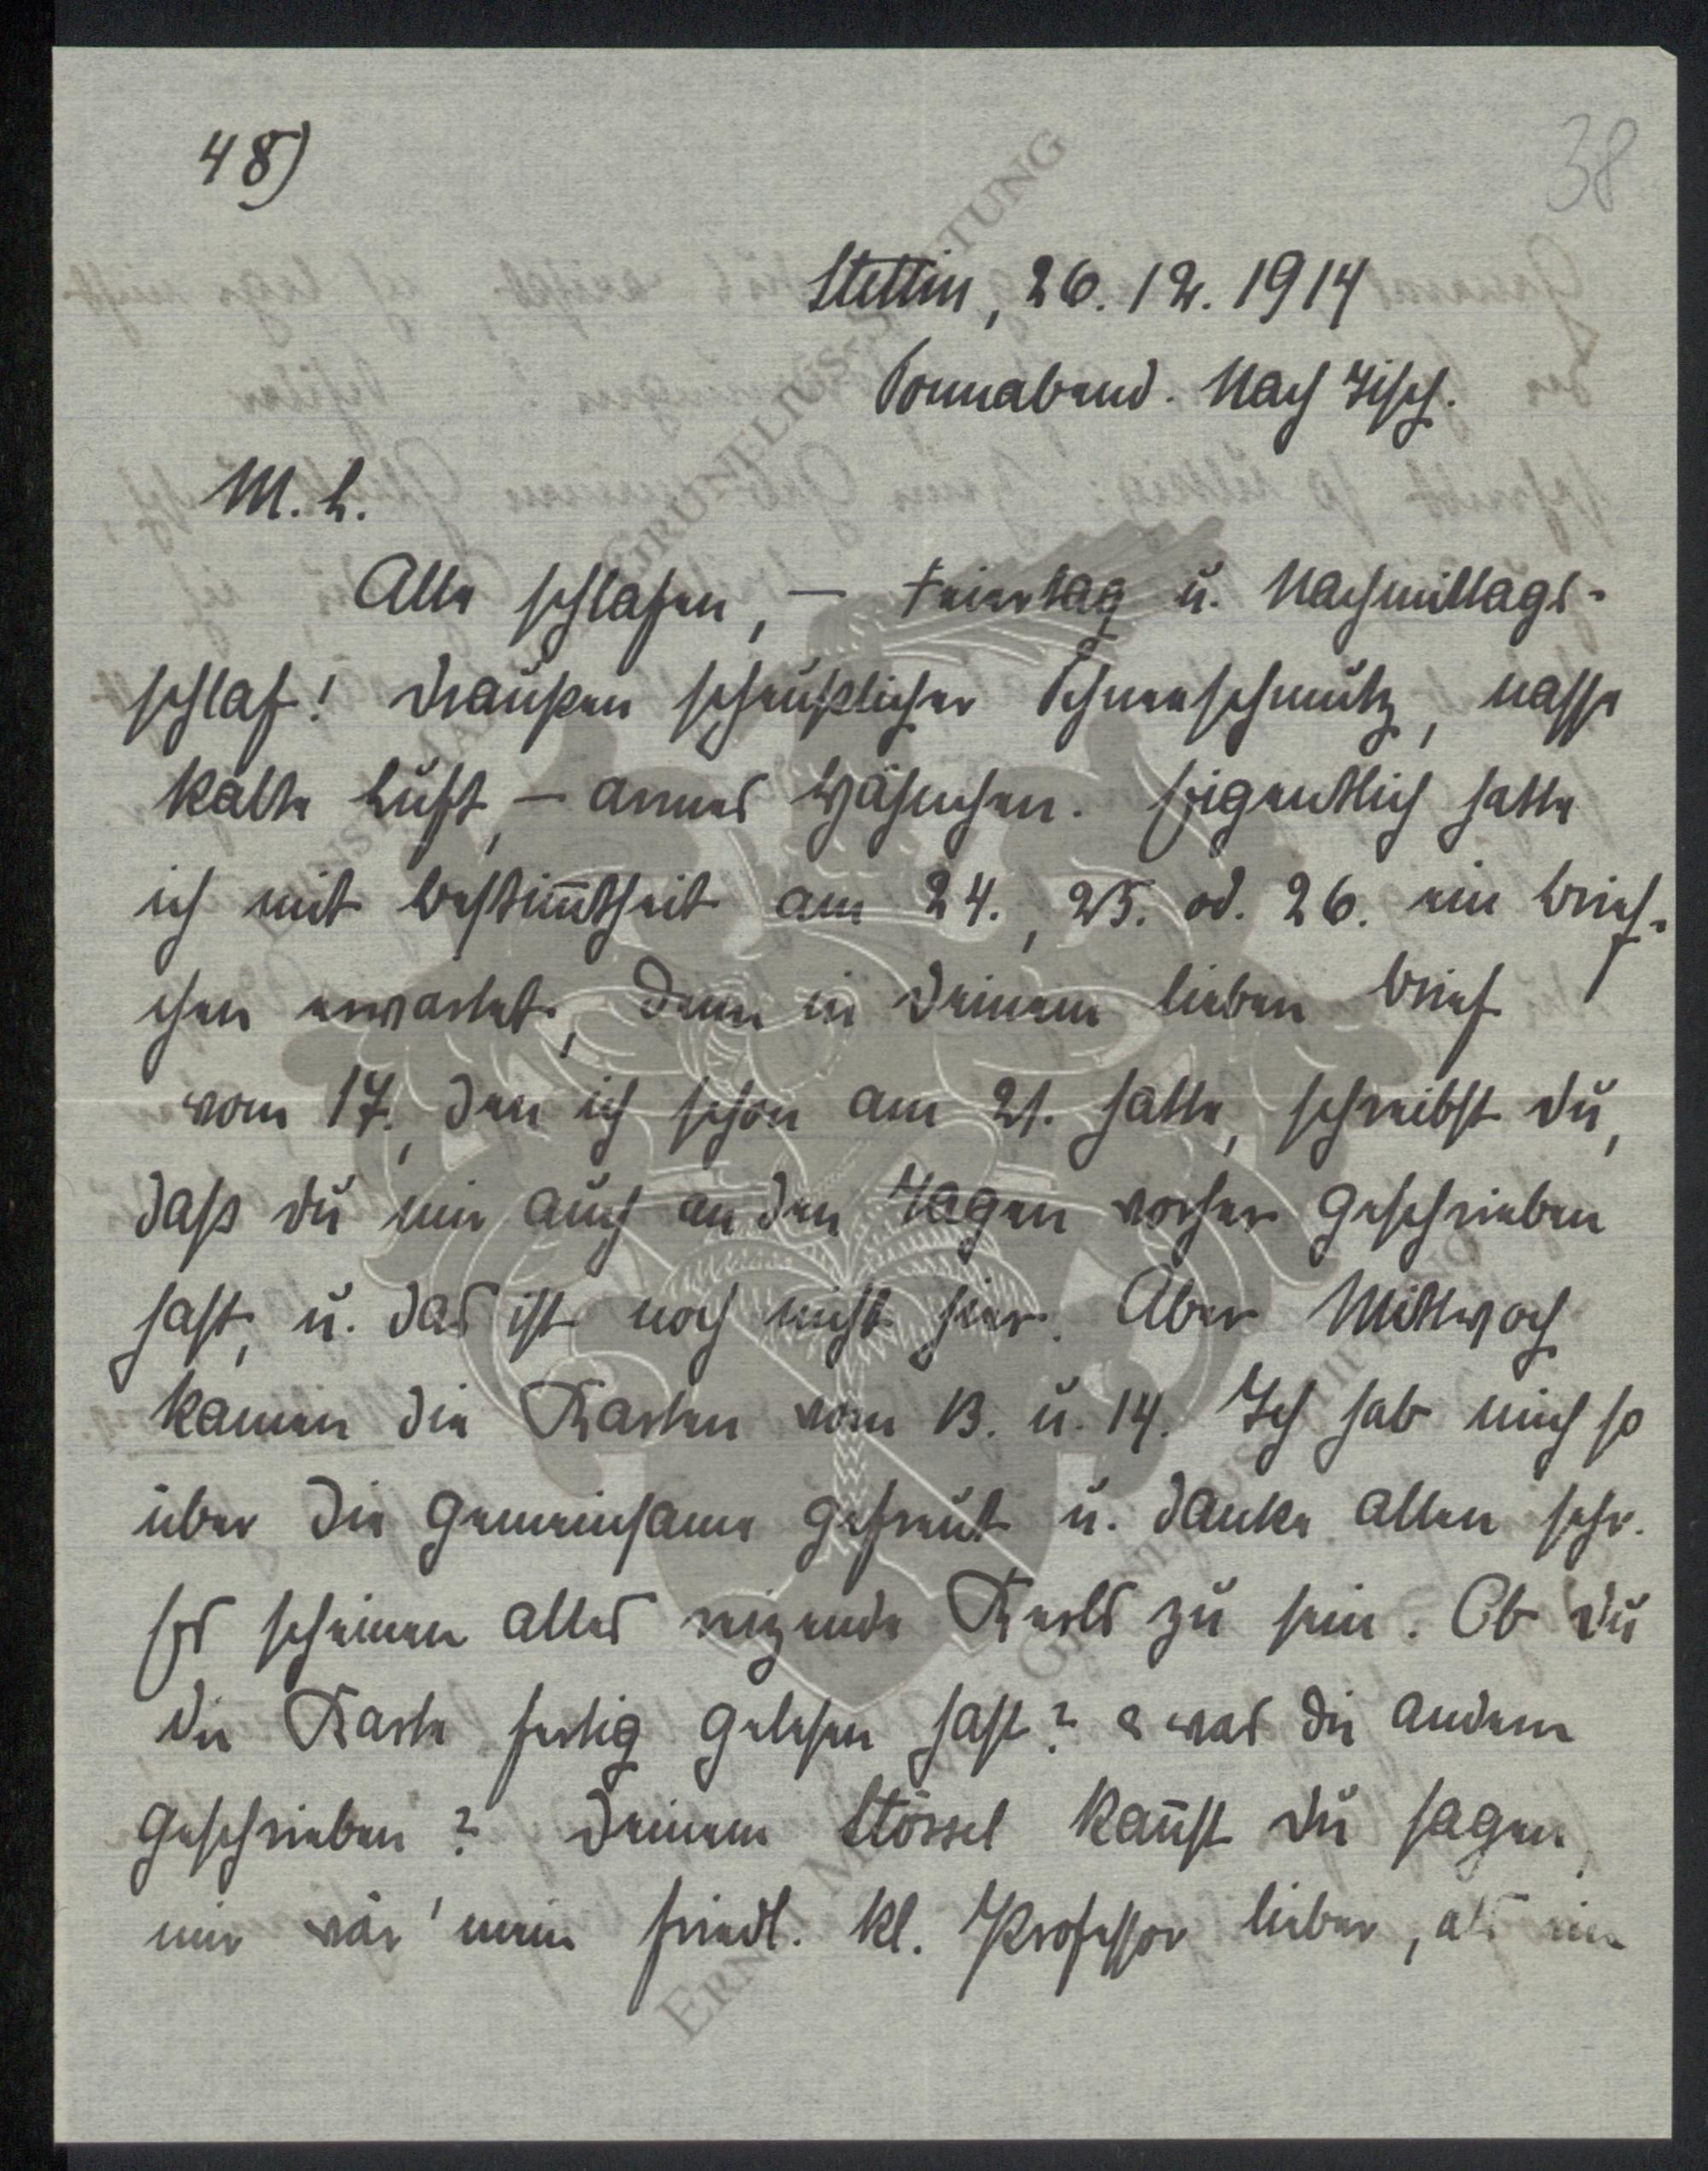 48)
38
Stettin, 26. 12. 1914
Sonnabend. Nach Tisch.
M. L.
Alle schlafen, – Feiertag u. Nachmittags-
schlaf! Draußen scheußlicher Schneeschmutz, nasse
kalte Luft, – armes Hähnchen. Eigentlich hatte
ich mit Bestim̅theit am 24., 25. od. 26. ein Brief-
chen erwartet, denn in Deinem lieben Brief
vom 17., den ich schon am 21. hatte, schreibst Du,
daß Du mir auch an den Tagen vorher geschrieben
hast, u. das ist noch nicht hier. Aber Mittwoch
kamen die Karten vom 13. u. 14. Ich hab mich so
über die gemeinsame gefreut u. danke allen sehr.
Es scheinen alles reizende Kerls zu sein. Ob Du
die Karte fertig gelesen hast? & was die andern
geschrieben? Deinem Stössel kan̅st Du sagen,
mir wär' mein friedl. kl. Professor lieber, als ein
ERNST MAX VON GRUNELIUS-STIFTUNG
ERNST MAX VON GRUNELIUS-STIFTUNG